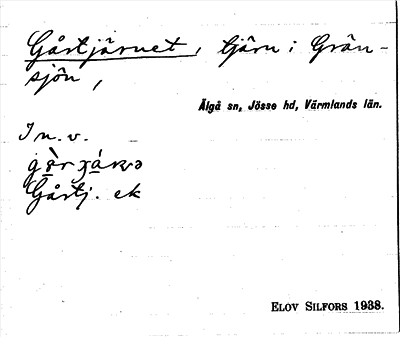 Gårtjärnet, tjärn i Grän-
sjön,
Älgå sn, Jösse hd, Värmlands län.
In. v.
Gårtj. ek
ELOV SILFORS 1938.